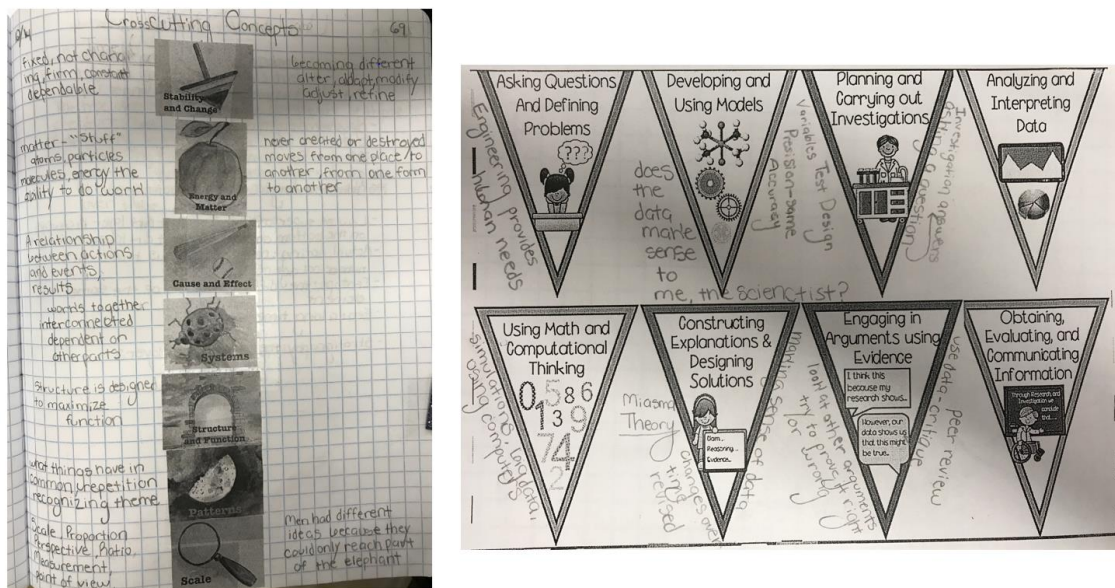 CrossCutting Concepts
69
fixed, not chang
ing, firm, constant
dependable
Stability
and Change
becoming different
alter, adapt, modify
adjust, refine
matter - "stuff"
atoms, particles
molecules, energy the
ability to do work
Energy and
Matter
never created or destroyed
moves from one place to
another, from one form
to another
A relationship
between actions
and events,
results
Cause and Effect
works together
interconnected
dependent on
other parts
Systems
Structure is designed
to maximize
function
Structure
and Function
what things have in
common, repetition
recognizing theme
Patterns
Scale, Proportion
Perspective, Ratio
Measurement,
point of view
Scale
Men had different
ideas because they
could only reach part
of the elephant
Asking Questions
And Defining
Problems
???
Engineering provides
human needs
Developing and
Using Models
does
the
data
make
sense
to
me, the scienctist?
Planning and
Carrying out
Investigations
Variables Test Design
Precision-same
Accuracy
Analyzing and
Interpreting
Data
Investigation answers
asking a question
Using Math and
Computational
Thinking
0 5 8 6
1 3 9
7 4
2
Simulations, long data,
using computers
Constructing
Explanations &
Designing
Solutions
Claim...
Reasoning...
Evidence...
Miasma
Theory
making sense of data
changes over
time
revised
Engaging in
Arguments using
Evidence
I think this
because my
research shows...
However, our
data shows us
that this might
be true...
look at other arguments
try to prove it right
/or
wrong
Obtaining,
Evaluating, and
Communicating
Information
Through Research and
Investigation we
conclude
that.....
use data-critique
peer review